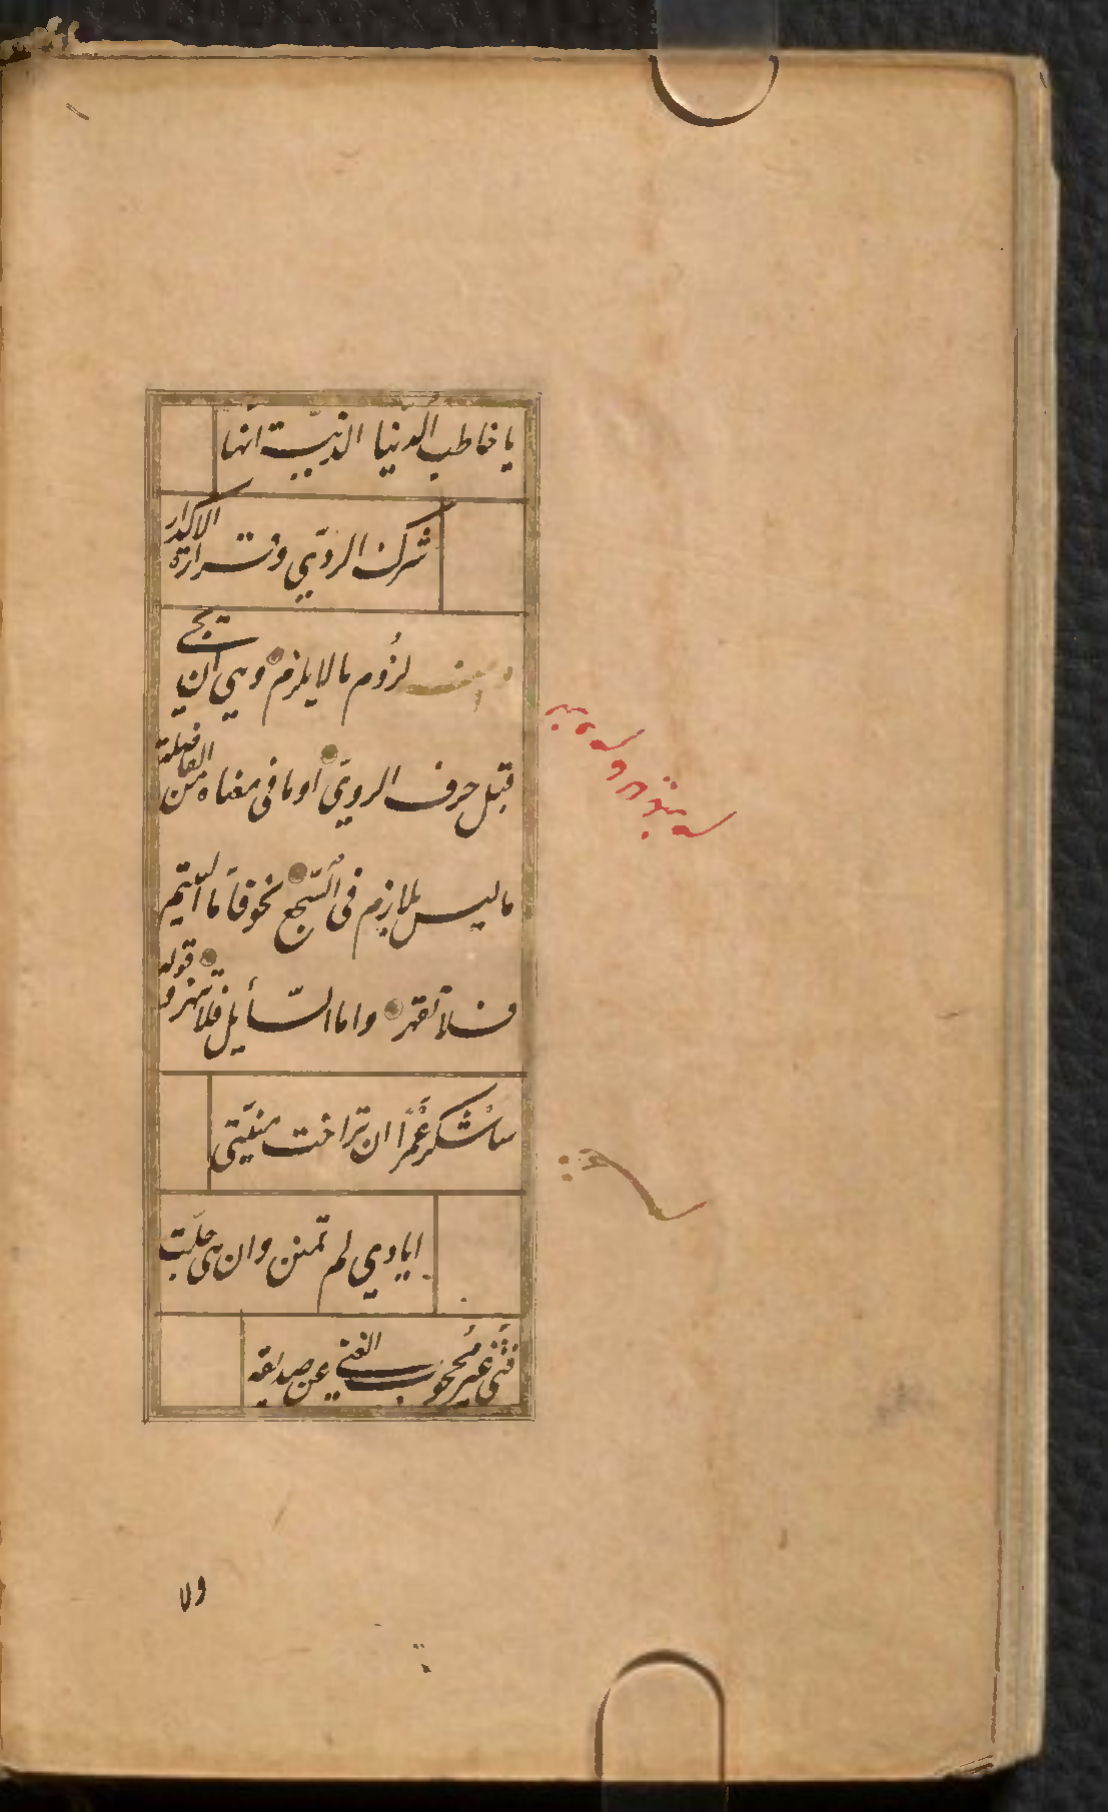 يا خاطب الدّنيا الدنيّة انّها
شرك الردّي وقرارة الاكدار
ومنه لزُوم ما لا يلزم وهي ان يجٓے
قبل حرف الرويّ او ما فى معناه من الفاصلة
ما ليس بلازم فى السّجع نحو فاَما اليَتيم
فلا تقهر واما السّأيل فلا تنهر و قوله
سأشكر عَمرًا ان تراخت منيّتى
ايادي لم تمنن وان هى جلّت
فتًى غيرُ محجُوب الغنى عن صديقه
ولا